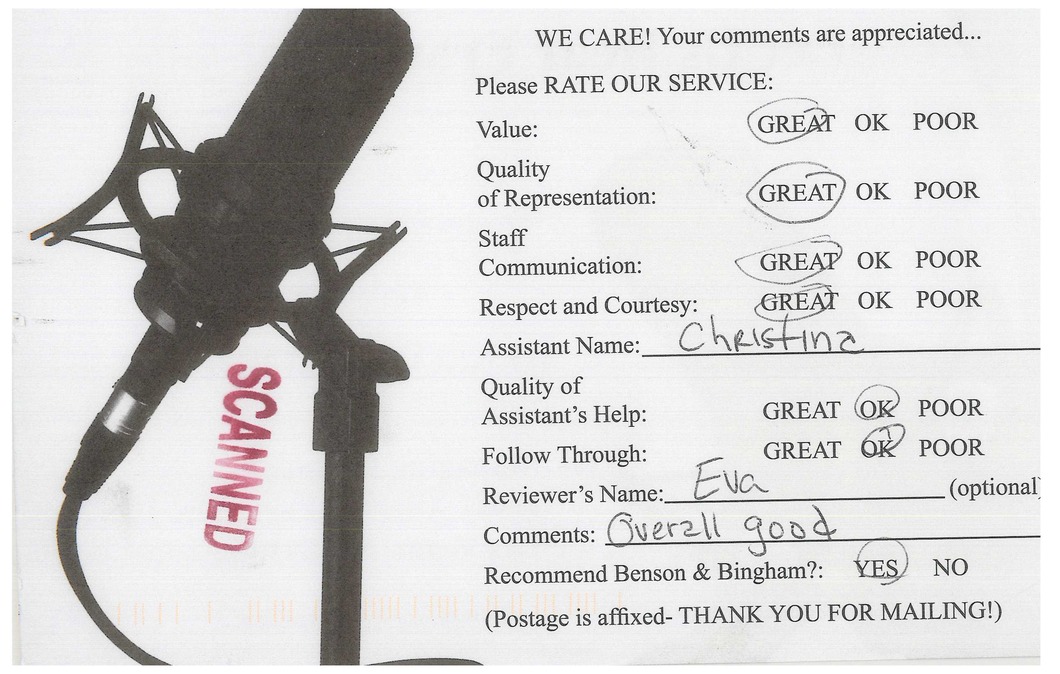 WE CARE! Your comments are appreciated...
Please RATE OUR SERVICE:
Value: GREAT OK POOR
Quality
of Representation: GREAT OK POOR
Staff
Communication: GREAT OK POOR
Respect and Courtesy: GREAT OK POOR
Assistant Name: Christina
Quality of
Assistant's Help: GREAT OK POOR
Follow Through: GREAT OK POOR
Reviewer's Name: Eva (optional)
Comments: Overall good
Recommend Benson & Bingham?: YES NO
(Postage is affixed- THANK YOU FOR MAILING!)
SCANNED